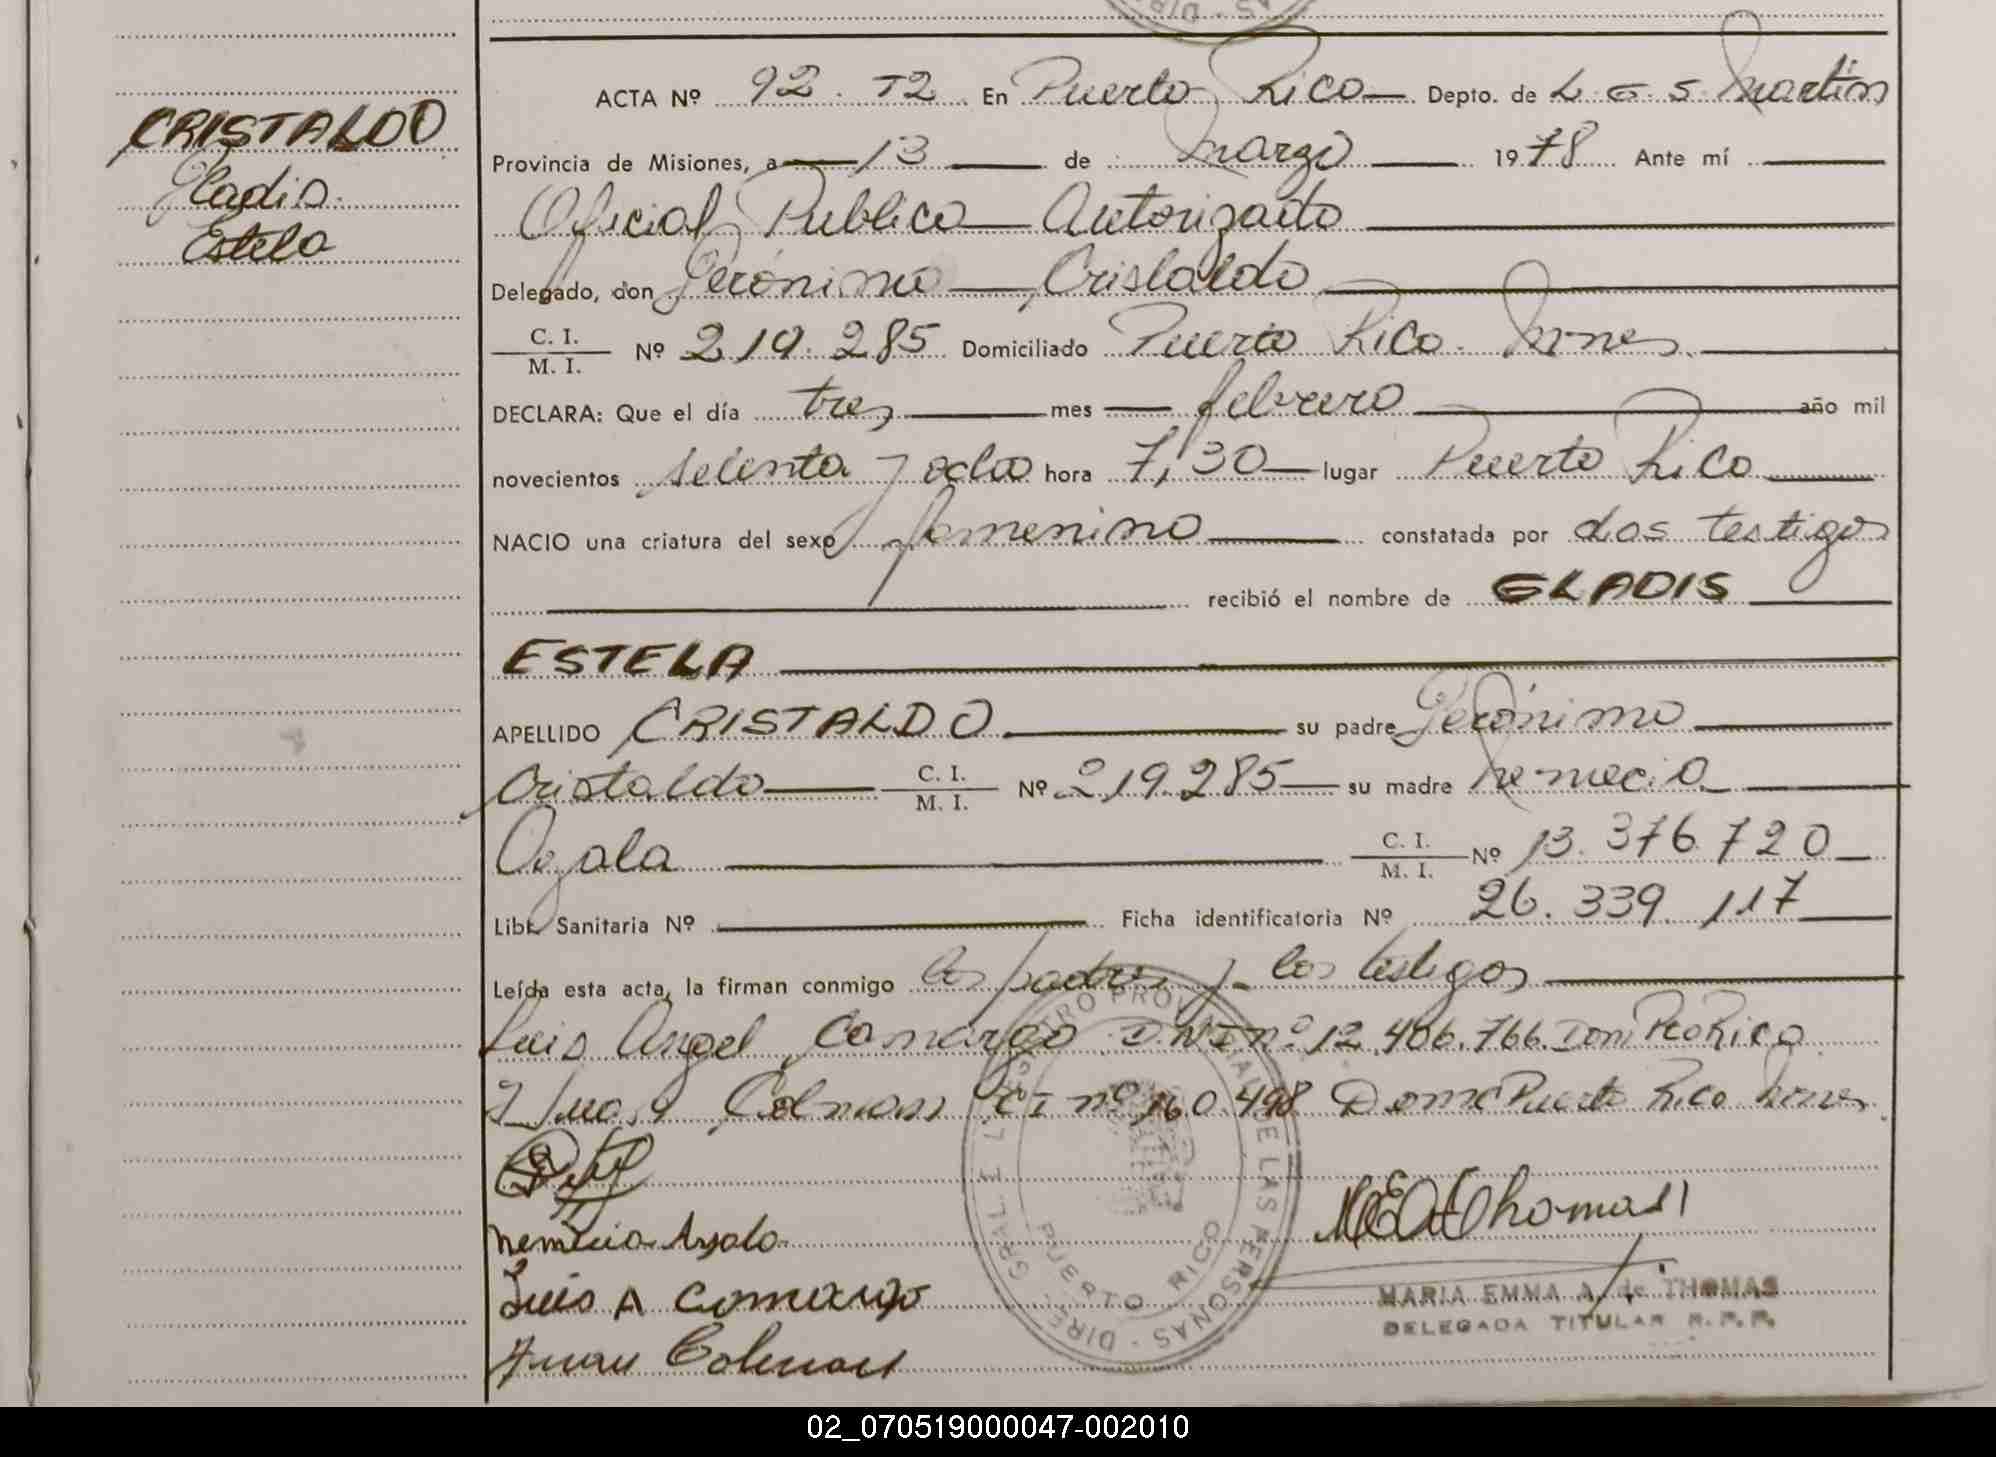 CRISTALDO
Gladis
Estela
ACTA Nº 92. T2 En Puerto Rico Depto. de L G S Martin
Provincia de Misiones, a 13 de marzo 1978 Ante mí
Oficial Publico Autorizado
Delegado, don Gerónimo Cristaldo
C. I.
M. I. Nº 219.285 Domiciliado Puerto Rico. Mnes
DECLARA: Que el día tres mes febrero año mil
novecientos setenta y ocho hora 7,30 lugar Puerto Rico
NACIO una criatura del sexo femenino constatada por dos testigos
recibió el nombre de GLADIS
ESTELA
APELLIDO CRISTALDO su padre Gerónimo
Cristaldo C. I. M. I. Nº 219.285 su madre Nemecia
C. I. M. I. Nº 13.376.720
Libt. Sanitaria Nº Ficha identificatoria Nº 26.339.117
Leída esta acta, la firman conmigo los padres y los testigos
Luis Angel Camargo D.N.I nº 12.406.766. Dom Pto Rico
y Juan Colman CI nº 160.498 Dom Puerto Rico Mnes
Nemecia Ayala
Luis A Camargo
Juan Colman
MEA de Thomas
MARIA EMMA A. de THOMAS
DELEGADA TITULAR R.P.P.
REGISTRO PROVINCIAL DE LAS PERSONAS - DIREC GRAL
PUERTO RICO
AS - DIR
02_070519000047-002010